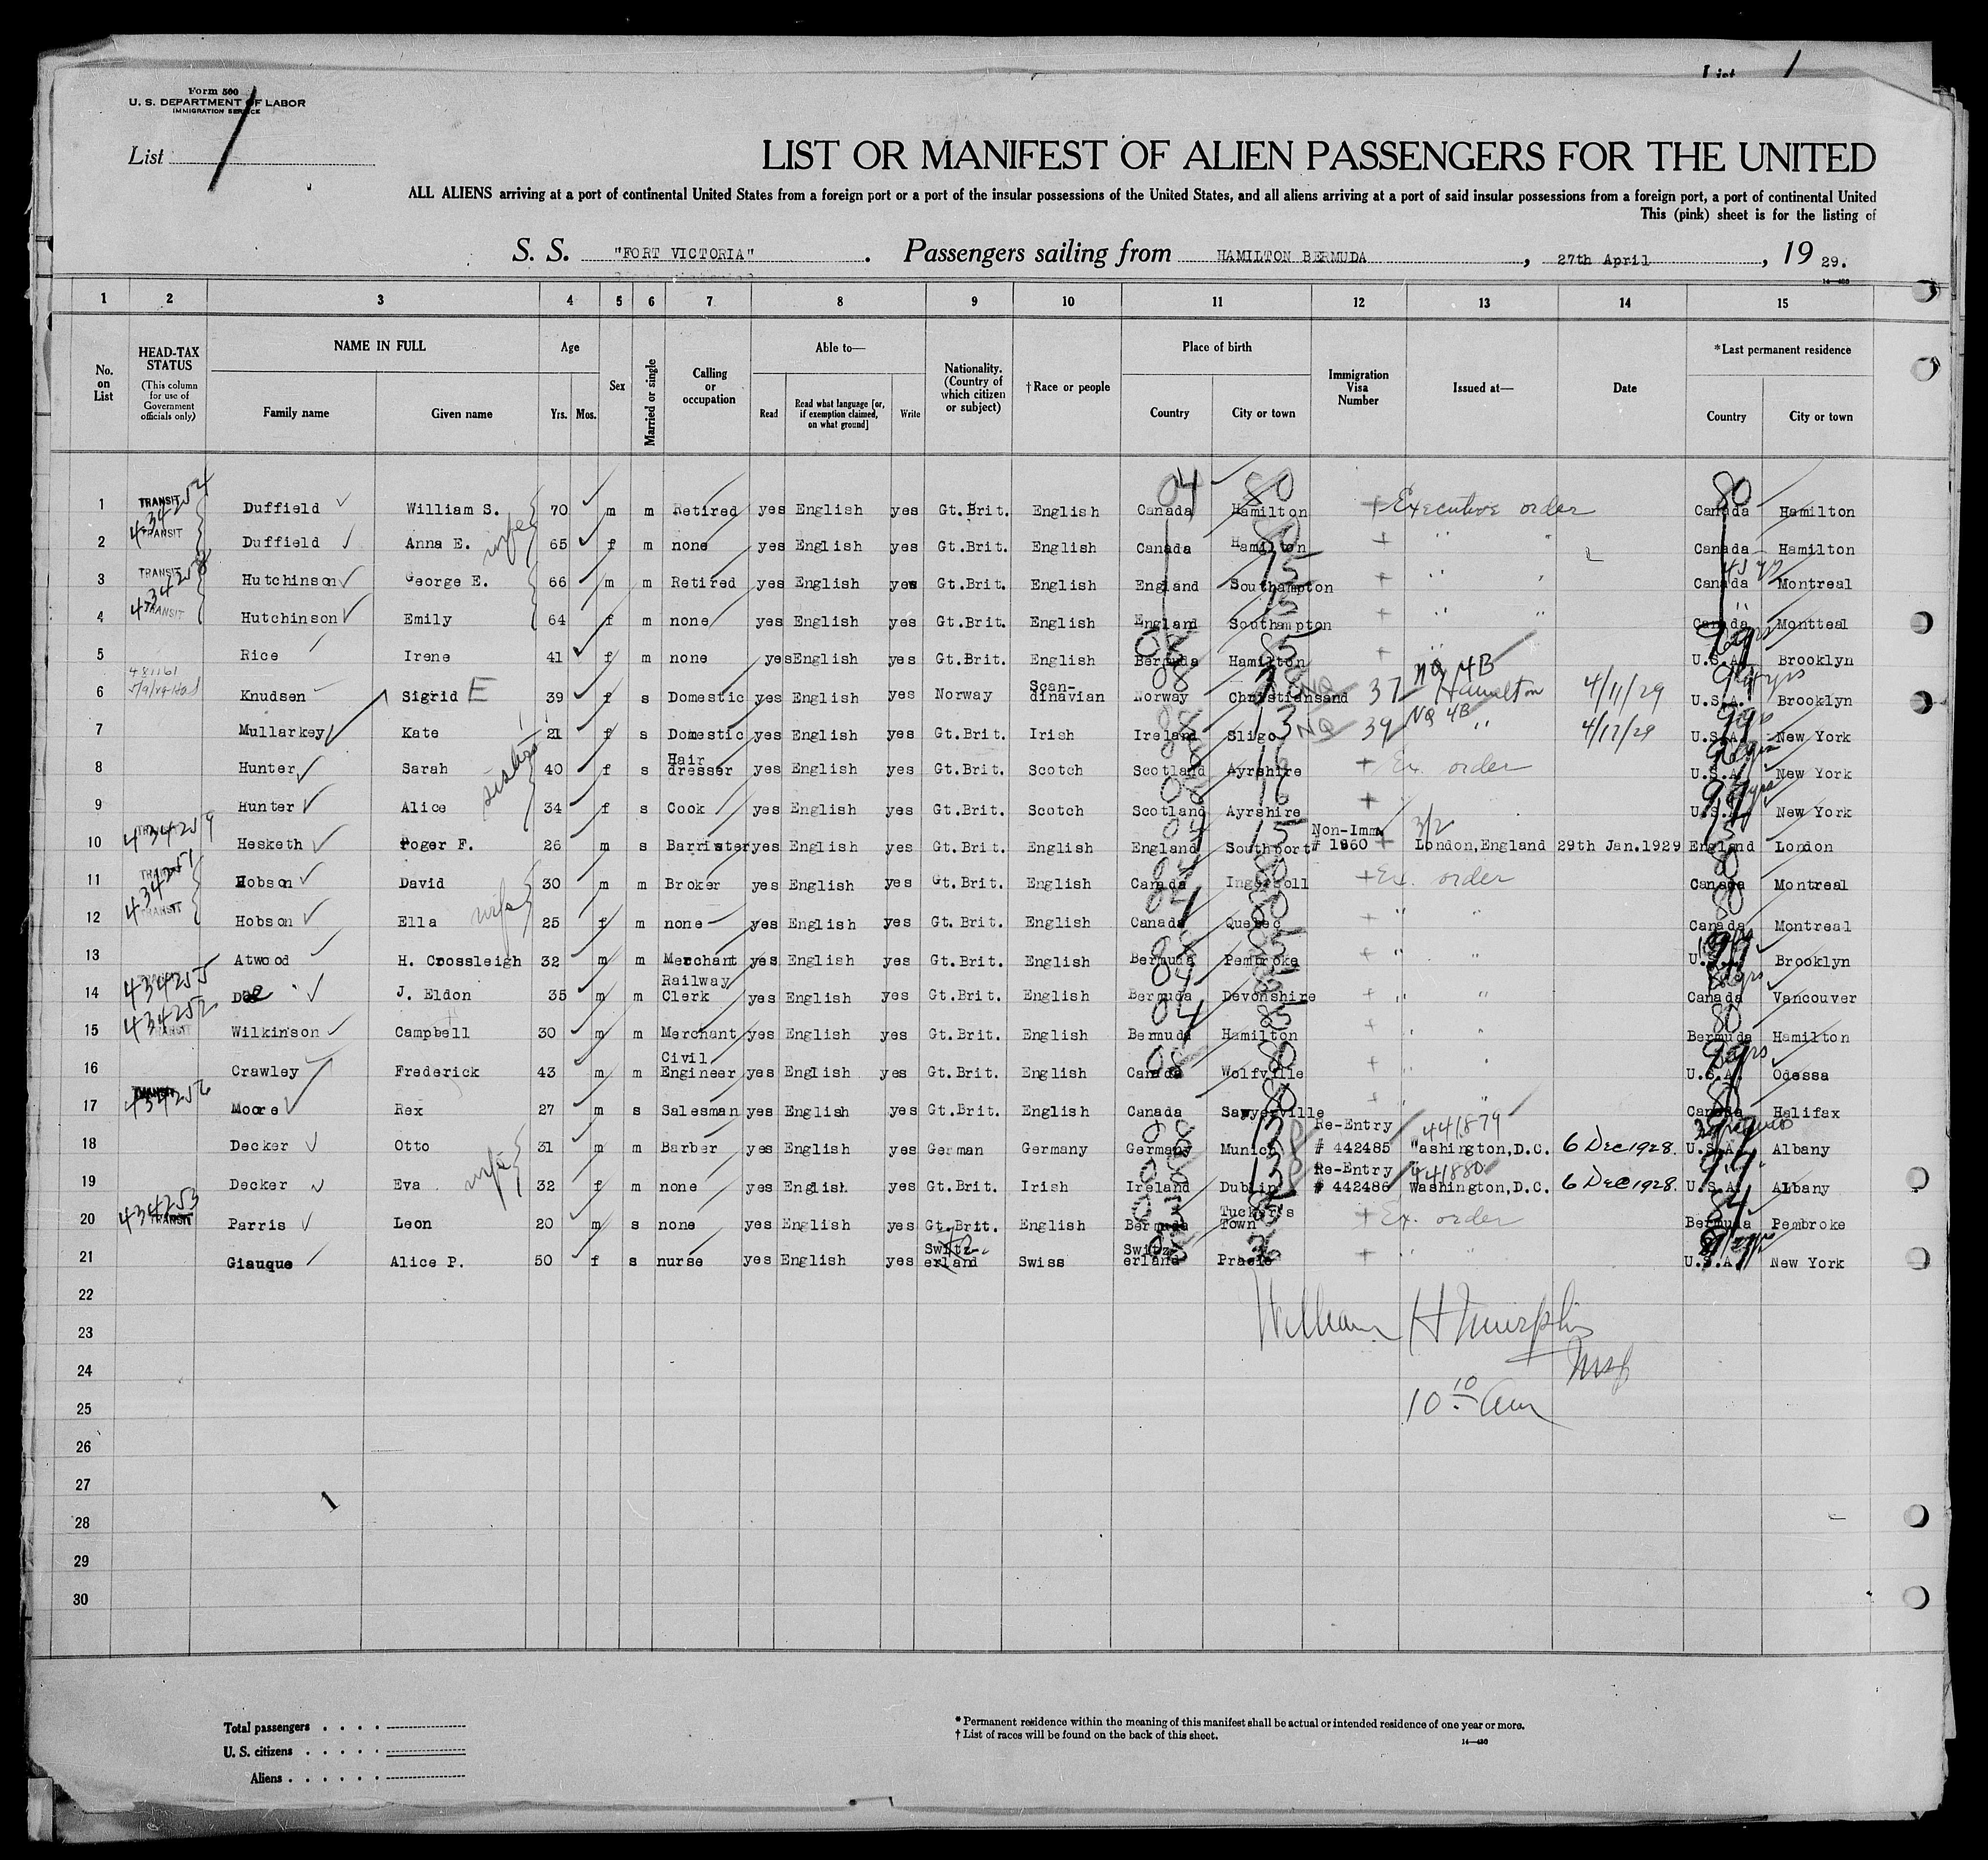 List 1
Form 500
U. S. DEPARTMENT OF LABOR
IMMIGRATION SERVICE
List 1
LIST OR MANIFEST OF ALIEN PASSENGERS FOR THE UNITED
ALL ALIENS arriving at a port of continental United States from a foreign port or a port of the insular possessions of the United States, and all aliens arriving at a port of said insular possessions from a foreign port, a port of continental United
This (pink) sheet is for the listing of
S. S. "FORT VICTORIA" . Passengers sailing from HAMILTON BERMUDA , 27th April , 19 29.
1 2 3 4 5 6 7 8 9 10 11 12 13 14 15
No. on List
HEAD-TAX STATUS (This column for use of Government officials only)
NAME IN FULL Family name Given name
Age Yrs. Mos.
Sex
Married or single
Calling or occupation
Able to— Read Read what language [or, if exemption claimed, on what ground] Write
Nationality. (Country of which citizen or subject)
†Race or people
Place of birth Country City or town
Immigration Visa Number
Issued at—
Date
*Last permanent residence Country City or town
1 TRANSIT 434254 Duffield William S. 70 m m Retired yes English yes Gt.Brit. English Canada Hamilton Executive order Canada Hamilton
2 TRANSIT Duffield Anna E. wife 65 f m none yes English yes Gt.Brit. English Canada Hamilton " " Canada Hamilton
3 TRANSIT 434258 Hutchinson George E. 66 m m Retired yes English yes Gt.Brit. English England Southampton " " Canada Montreal
4 TRANSIT Hutchinson Emily 64 f m none yes English yes Gt.Brit. English England Southampton " " Canada Montteal
5 Rice Irene 41 f m none yes English yes Gt.Brit. English Bermuda Hamilton U.S.A. Brooklyn
6 Knudsen Sigrid E 39 f s Domestic yes English yes Norway Scan-dinavian Norway Christiansand NQ 37 NQ 4B Hamilton 4/11/29 U.S.A. Brooklyn
7 Mullarkey Kate 21 f s Domestic yes English yes Gt.Brit. Irish Ireland Sligo NQ 39 NQ 4B " 4/17/29 U.S.A. New York
8 Hunter Sarah sisters 40 f s Hair dresser yes English yes Gt.Brit. Scotch Scotland Ayrshire Ex. order U.S.A. New York
9 Hunter Alice 34 f s Cook yes English yes Gt.Brit. Scotch Scotland Ayrshire U.S.A. New York
10 434259 Hesketh Roger F. 26 m s Barrister yes English yes Gt.Brit. English England Southport Non-Imm # 1960 London,England 29th Jan.1929 England London
11 434251 Hobson David 30 m m Broker yes English yes Gt.Brit. English Canada Ingersoll Ex. order Canada Montreal
12 TRANSIT Hobson Ella wife 25 f m none yes English yes Gt.Brit. English Canada Quebec " " Canada Montreal
13 Atwood H. Crossleigh 32 m m Merchant yes English yes Gt.Brit. English Bermuda Pembroke " " U.S.A. Brooklyn
14 434255 J. Eldon 35 m m Railway Clerk yes English yes Gt.Brit. English Bermuda Devonshire " " Canada Vancouver
15 434252 TRANSIT Wilkinson Campbell 30 m m Merchant yes English yes Gt.Brit. English Bermuda Hamilton Bermuda Hamilton
16 Crawley Frederick 43 m m Civil Engineer yes English yes Gt.Brit. English Canada Wolfville U.S.A. Odessa
17 TRANSIT 434256 Moore Rex 27 m s Salesman yes English yes Gt.Brit. English Canada Sawyerville Canada Halifax
18 Decker Otto 31 m m Barber yes English yes German Germany Germany Munich Re-Entry # 442485 441879 Washington,D.C. 6 Dec 1928. U.S.A. Albany
19 Decker Eva wife 32 f m none yes English yes Gt.Brit. Irish Ireland Dublin Re-Entry # 442486 441880 Washington,D.C. 6 Dec 1928. U.S.A. Albany
20 434253 TRANSIT Parris Leon 20 m s none yes English yes Gt.Brit. English Bermuda Tucker's Town Ex. order Bermuda Pembroke
21 Giauque Alice P. 50 f s nurse yes English yes Switz-erland Swiss Switz-erland U.S.A. New York
22
23 William H Murphy
24 Insp
25 10 10 am
26
27
1
28
29
30
Total passengers . . . .
U. S. citizens . . . . .
Aliens . . . . . .
* Permanent residence within the meaning of this manifest shall be actual or intended residence of one year or more.
† List of races will be found on the back of this sheet.
14—430